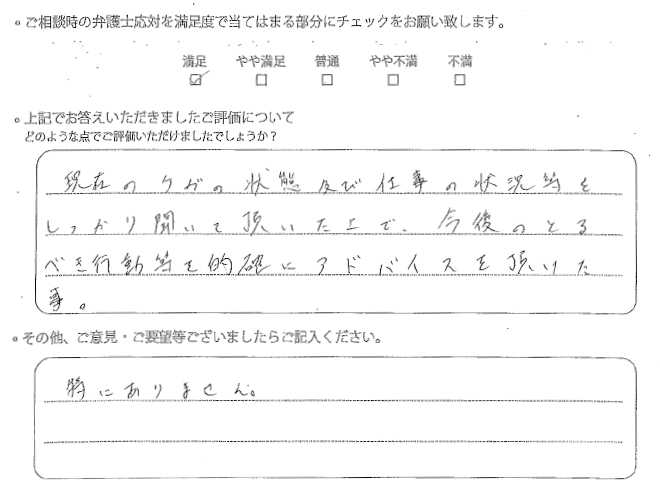 ご相談時の弁護士応対を満足度で当てはまる部分にチェックをお願い致します。
満足 やや満足 普通 やや不満 不満
上記でお答えいただきましたご評価について
どのような点でご評価いただけましたでしょうか？
現在のケガの状態及び仕事の状況等を
しっかり聞いて頂いた上で、今後のとる
べき行動等を的確にアドバイスを頂けた
事。
その他、ご意見・ご要望等ございましたらご記入ください。
特にありません。